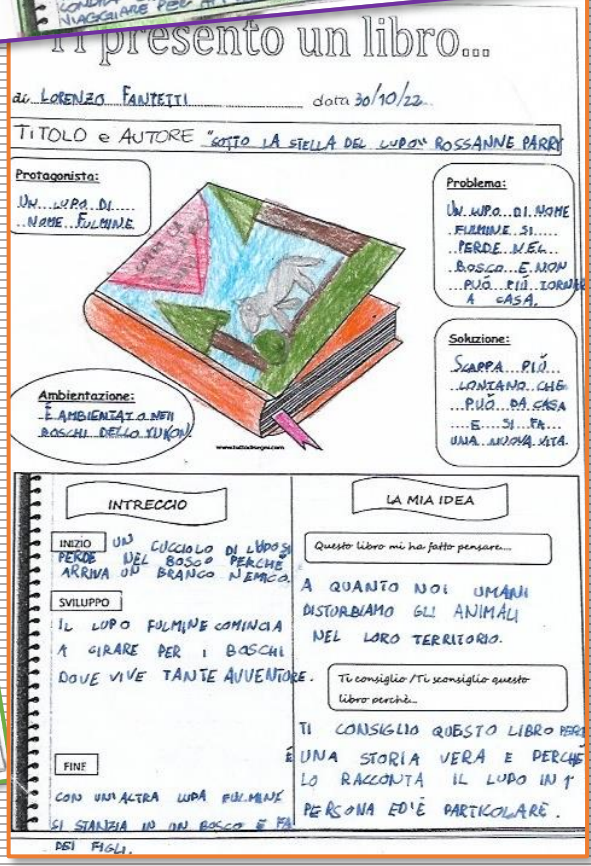 VIAGGIARE PER
Ti presento un libro...
di LORENZO FANTETTI data 30/10/22
TITOLO e AUTORE "SOTTO LA STELLA DEL LUPO" ROSSANNE PARRY
Protagonista:
UN LUPO DI
NOME FULMINE
Problema:
UN LUPO DI NOME
FULMINE SI
PERDE NEL
BOSCO E NON
PUÓ PIÚ TORNAR
A CASA.
Soluzione:
SCAPPA PIÚ
LONTANO CHE
PUÓ DA CASA
E SI FA
UNA NUOVA VITA.
Ambientazione:
É AMBIENTATO NEI
BOSCHI DELLO YUKON.
www.tuttodisegni.com
INTRECCIO
INIZIO UN CUCCIOLO DI LUPO SI
PERDE NEL BOSCO PERCHÉ
ARRIVA UN BRANCO NEMICO.
SVILUPPO
IL LUPO FULMINE COMINCIA
A GIRARE PER I BOSCHI
DOVE VIVE TANTE AVVENTURE.
FINE
CON UN'ALTRA LUPA FULMINE
SI STANZIA IN UN BOSCO E FA
DEI FIGLI.
LA MIA IDEA
Questo libro mi ha fatto pensare...
A QUANTO NOI UMANI
DISTURBIAMO GLI ANIMALI
NEL LORO TERRITORIO.
Ti consiglio /Ti sconsiglio questo
libro perché...
TI CONSIGLIO QUESTO LIBRO PERCH
É UNA STORIA VERA E PERCHÉ
LO RACCONTA IL LUPO IN 1ª
PERSONA ED'É PARTICOLARE.